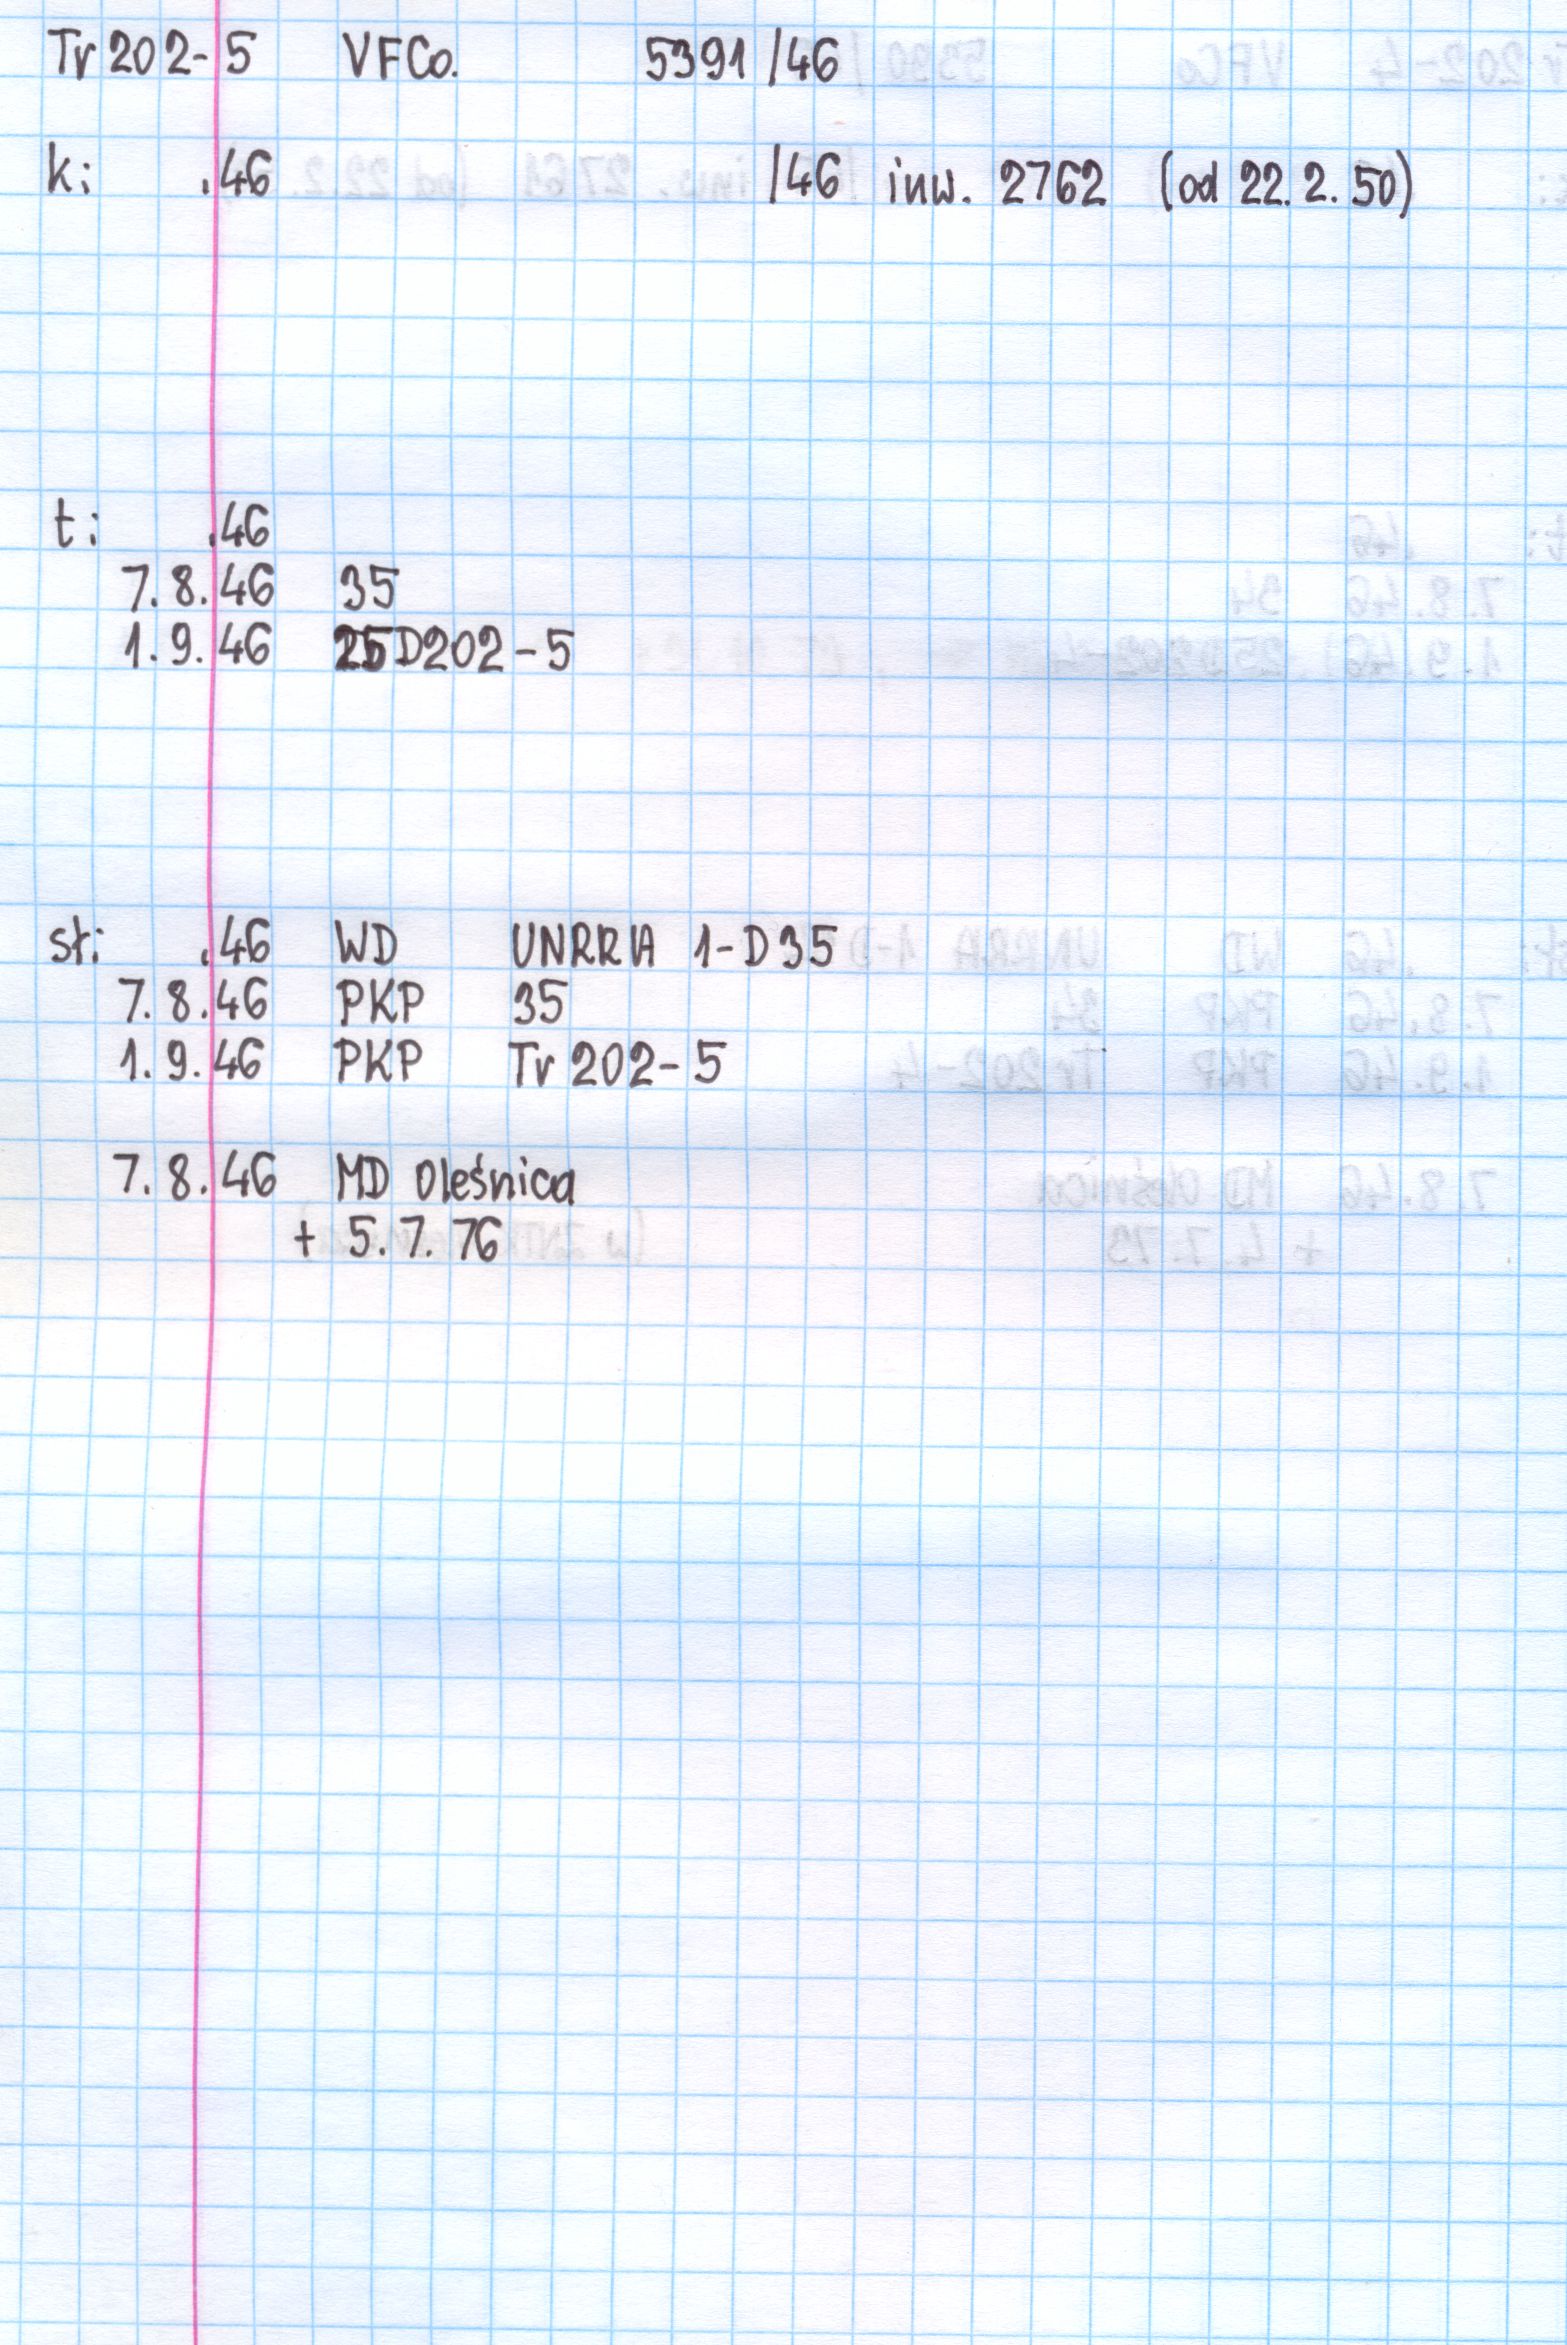 Tr 202-5 VFCo. 5391 /46
k: .46 /46 inw. 2762 (od 22.2.50)
t: .46
7.8.46 35
1.9.46 25D202-5
st: .46 WD UNRRA 1-D35
7.8.46 PKP 35
1.9.46 PKP Tr 202-5
7.8.46 MD Oleśnica
+ 5.7.76